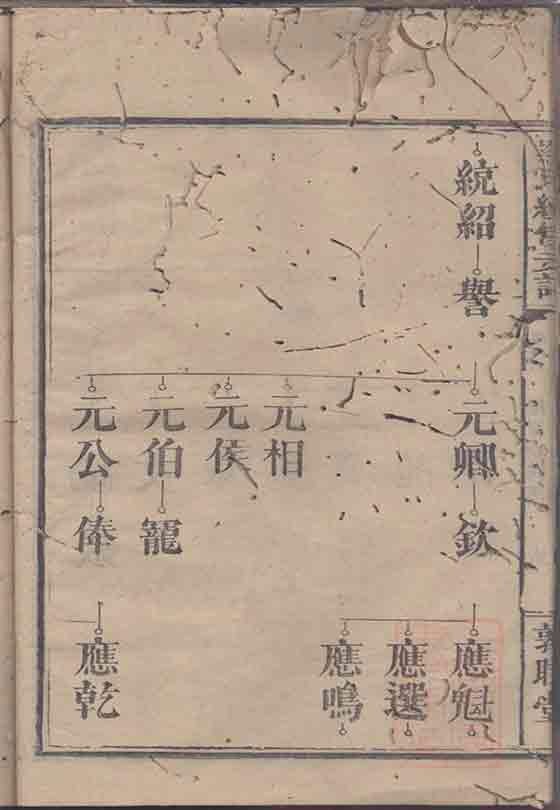 統紹 譽
元卿 欽
元相
元侯
元伯 寵
元公 俸
應魁
應選
應鳴
應乾
敦睦堂